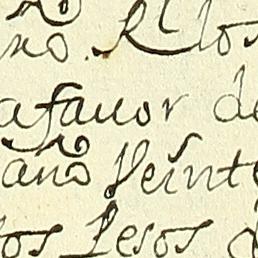 no. R.l los
a favor de
año Veinte
tos Pesos d